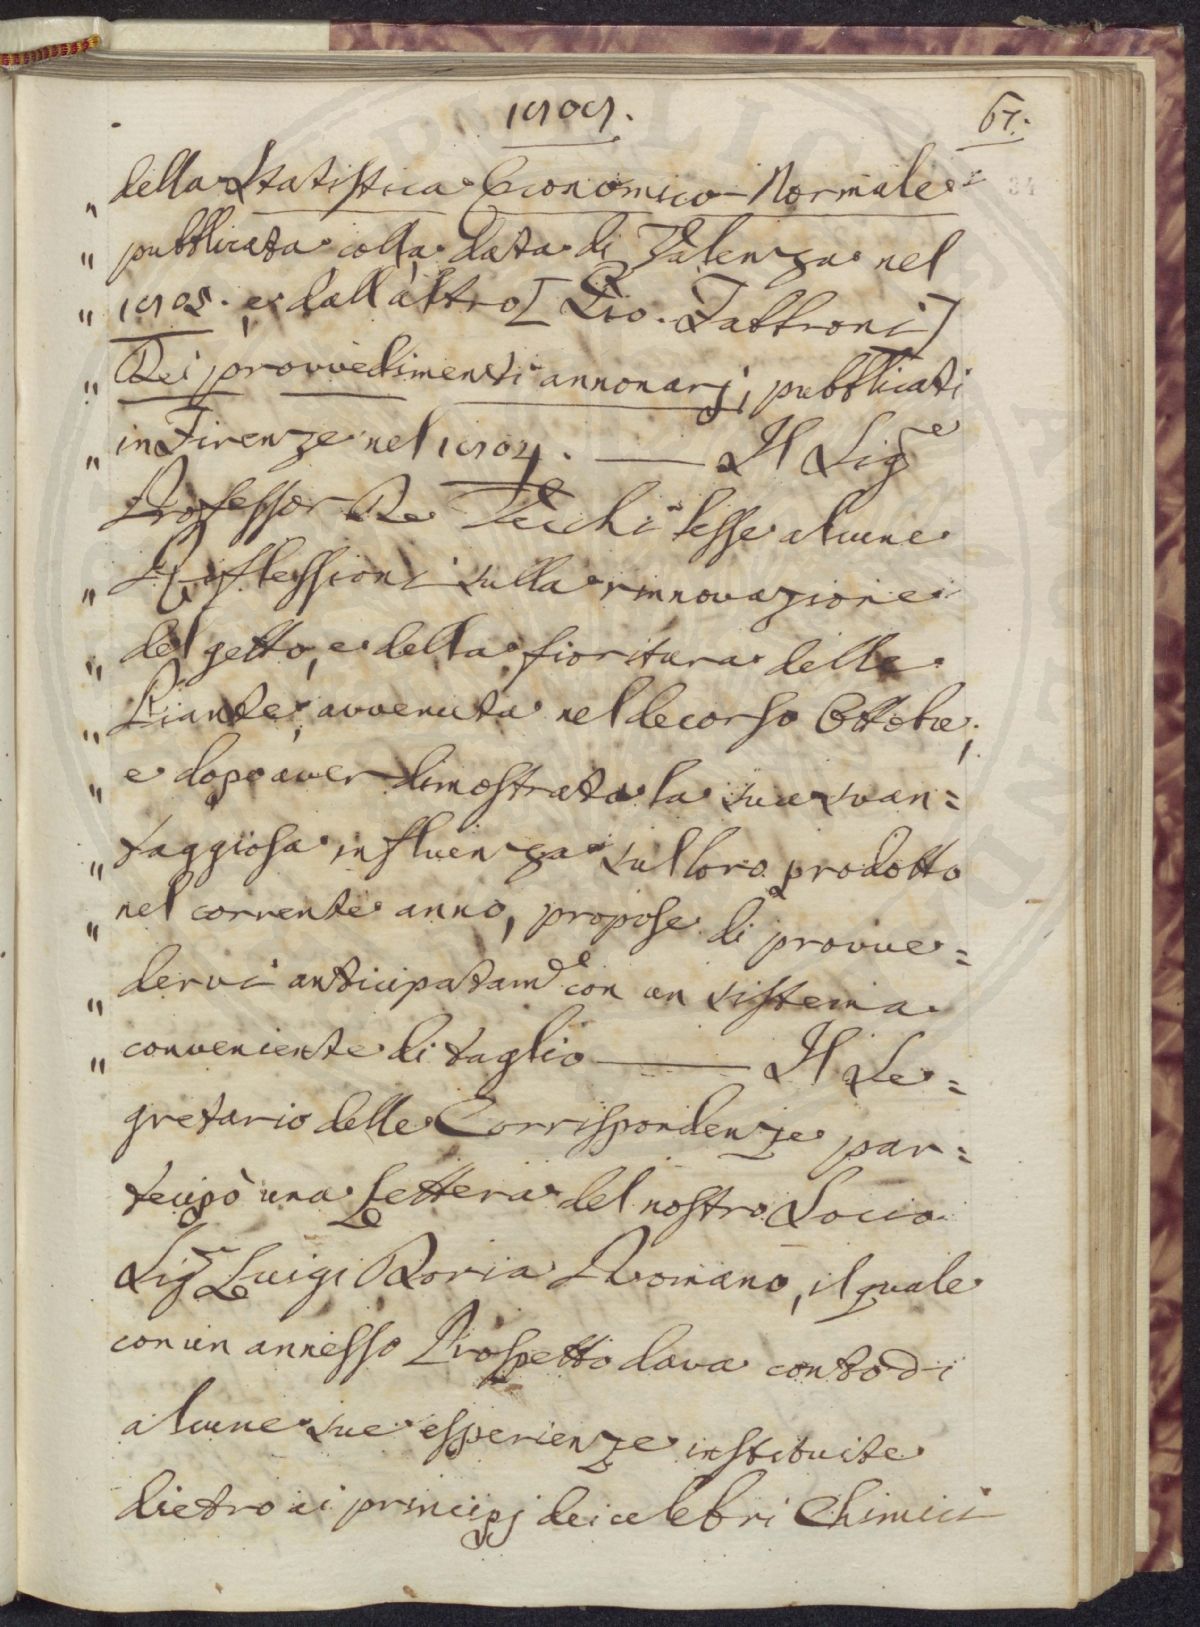 1808.
67.
" della Statistica Economico-Normale
" pubblicata colla data di Valenza nel
" 1805. e dall'altro [Gio. Fabbroni]
" Dei provvedimenti annonarj, pubblicati
" in Firenze nel 1804. — Il Sig.e
Professor De Vecchi lesse alcune
" Riflessioni sulla rinnovazione
" del getto, e della fioritura delle
" Piante, avvenuta nel decorso Ottobre;
" e dopo aver dimostrata la sua svan=
" taggiosa influenza sul loro prodotto
" nel corrente anno, propose di provve=
" dervi anticipatam.e con un sistema
" conveniente di taglio — Il Se=
gretario delle Corrispondenze par=
tecipò una Lettera del nostro Socio
Sig.r Luigi Doria Romano, il quale
con un annesso Prospetto dava conto di
alcune sue esperienze instituite
dietro ai principj dei celebri Chimici